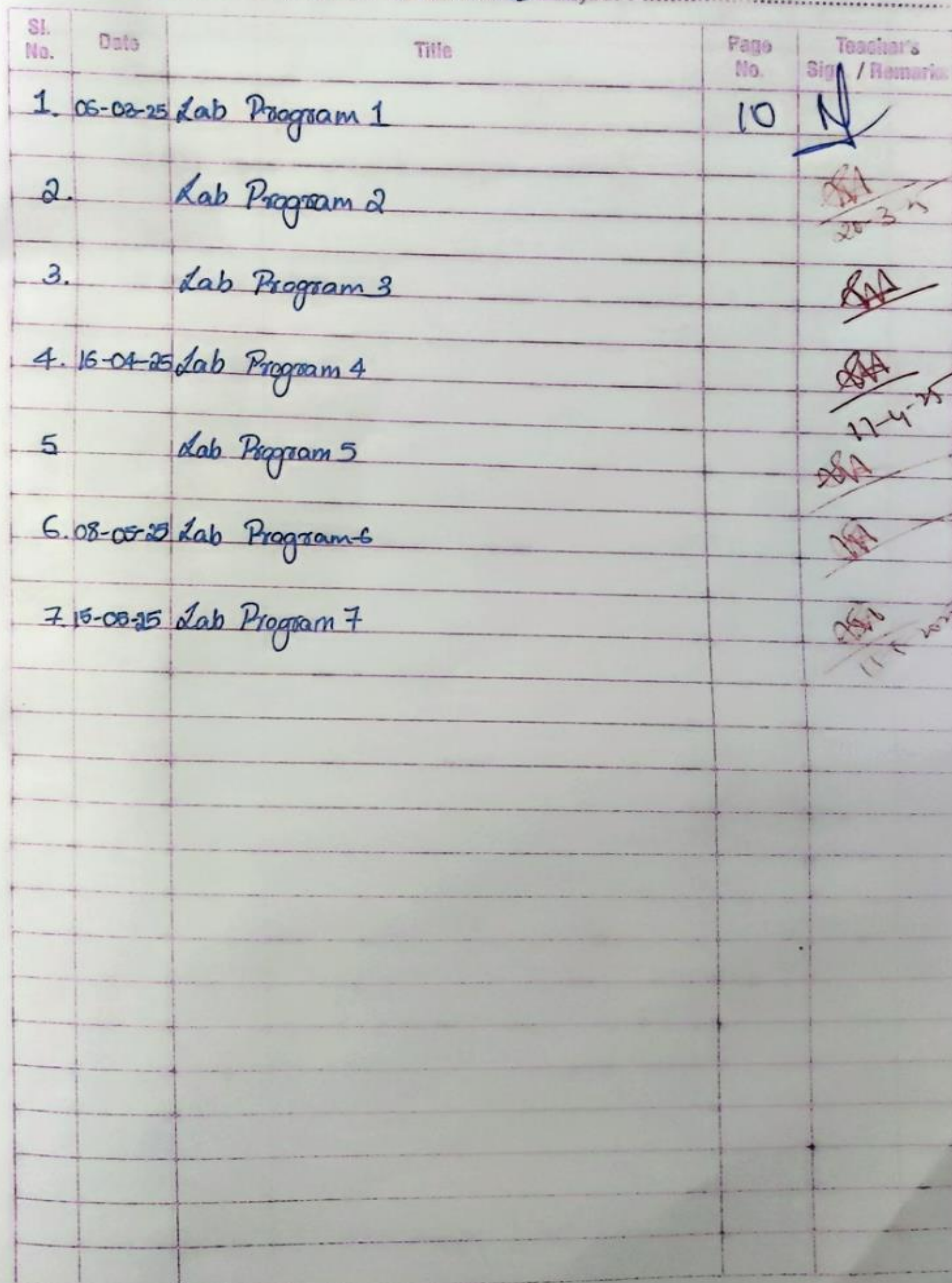 Sl. No. Date Title Page No. Teacher's Sign / Remarks
1. 06-03-25 Lab Program 1 10
2. Lab Program 2
20-3-25
3. Lab Program 3
4. 16-04-25 Lab Program 4
17-4-25
5 Lab Program 5
6. 08-05-25 Lab Program-6
7. 15-05-25 Lab Program 7